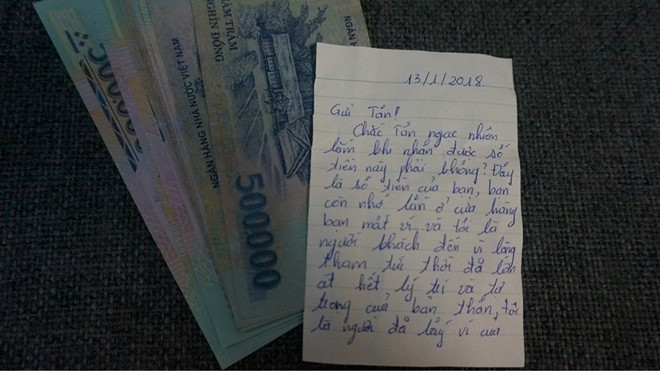 NĂM TRĂM
NGHÌN ĐỒNG
NGÂN H
NGÂN HÀNG NHÀ NƯỚC VIỆT NAM
500000
13/1/2018
Gửi Tấn!
Chắc Tấn ngạc nhiên
lắm khi nhận được số
tiền này phải không? Đây
là số tiền của bạn, bạn
còn nhớ lần ở cửa hàng
bạn mất ví và tôi là
người khách đến vì lòng
tham tức thời đã lấn
át hết lý trí và tự
trọng của bản thân, tôi
là người đã lấy ví của